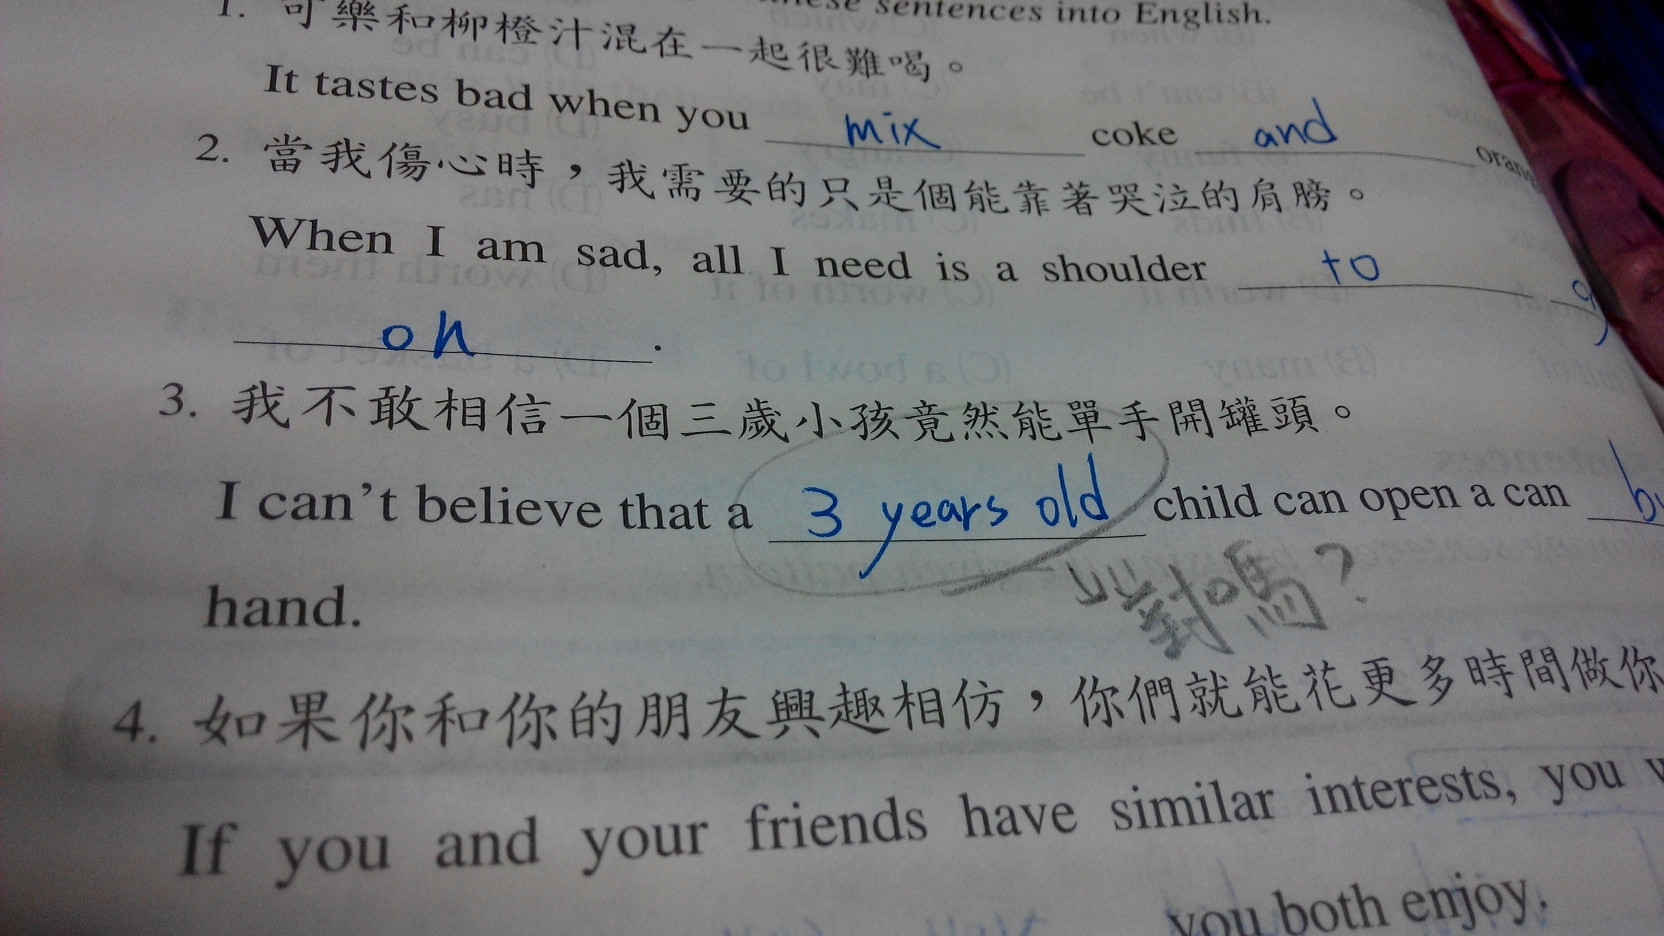 sentences into English.
1. 可樂和柳橙汁混在一起很難喝。
It tastes bad when you mix coke and
2. 當我傷心時，我需要的只是個能靠著哭泣的肩膀。
When I am sad, all I need is a shoulder to
on.
3. 我不敢相信一個三歲小孩竟然能單手開罐頭。
I can't believe that a 3 years old child can open a can
hand.
對嗎？
4. 如果你和你的朋友興趣相仿，你們就能花更多時間做你
If you and your friends have similar interests, you
you both enjoy.